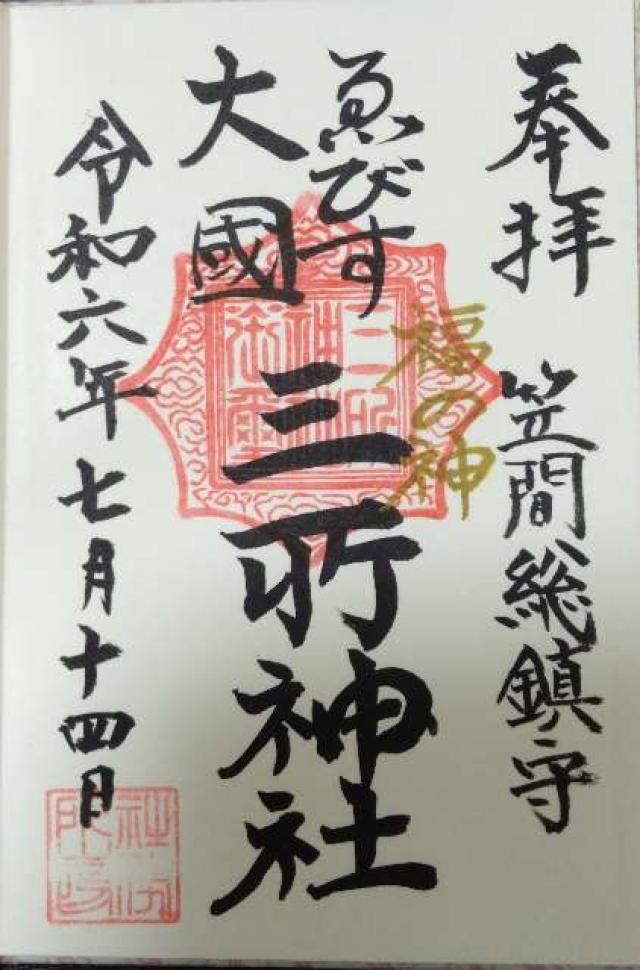 奉拝
笠間総鎮守
福の神
ゑびす
大國
三所神社
令和六年七月十四日